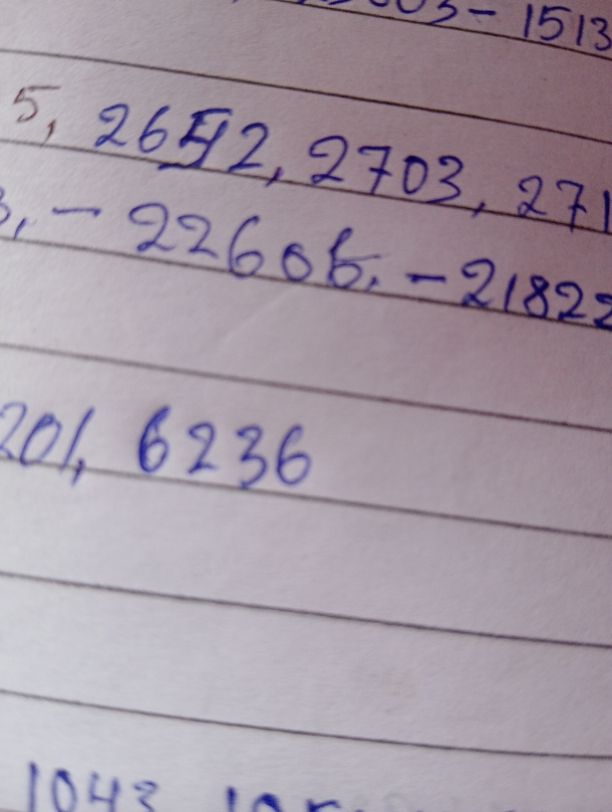 - 1513
5, 2652, 2703, 271
, - 22606, - 21822
201, 6236
1043